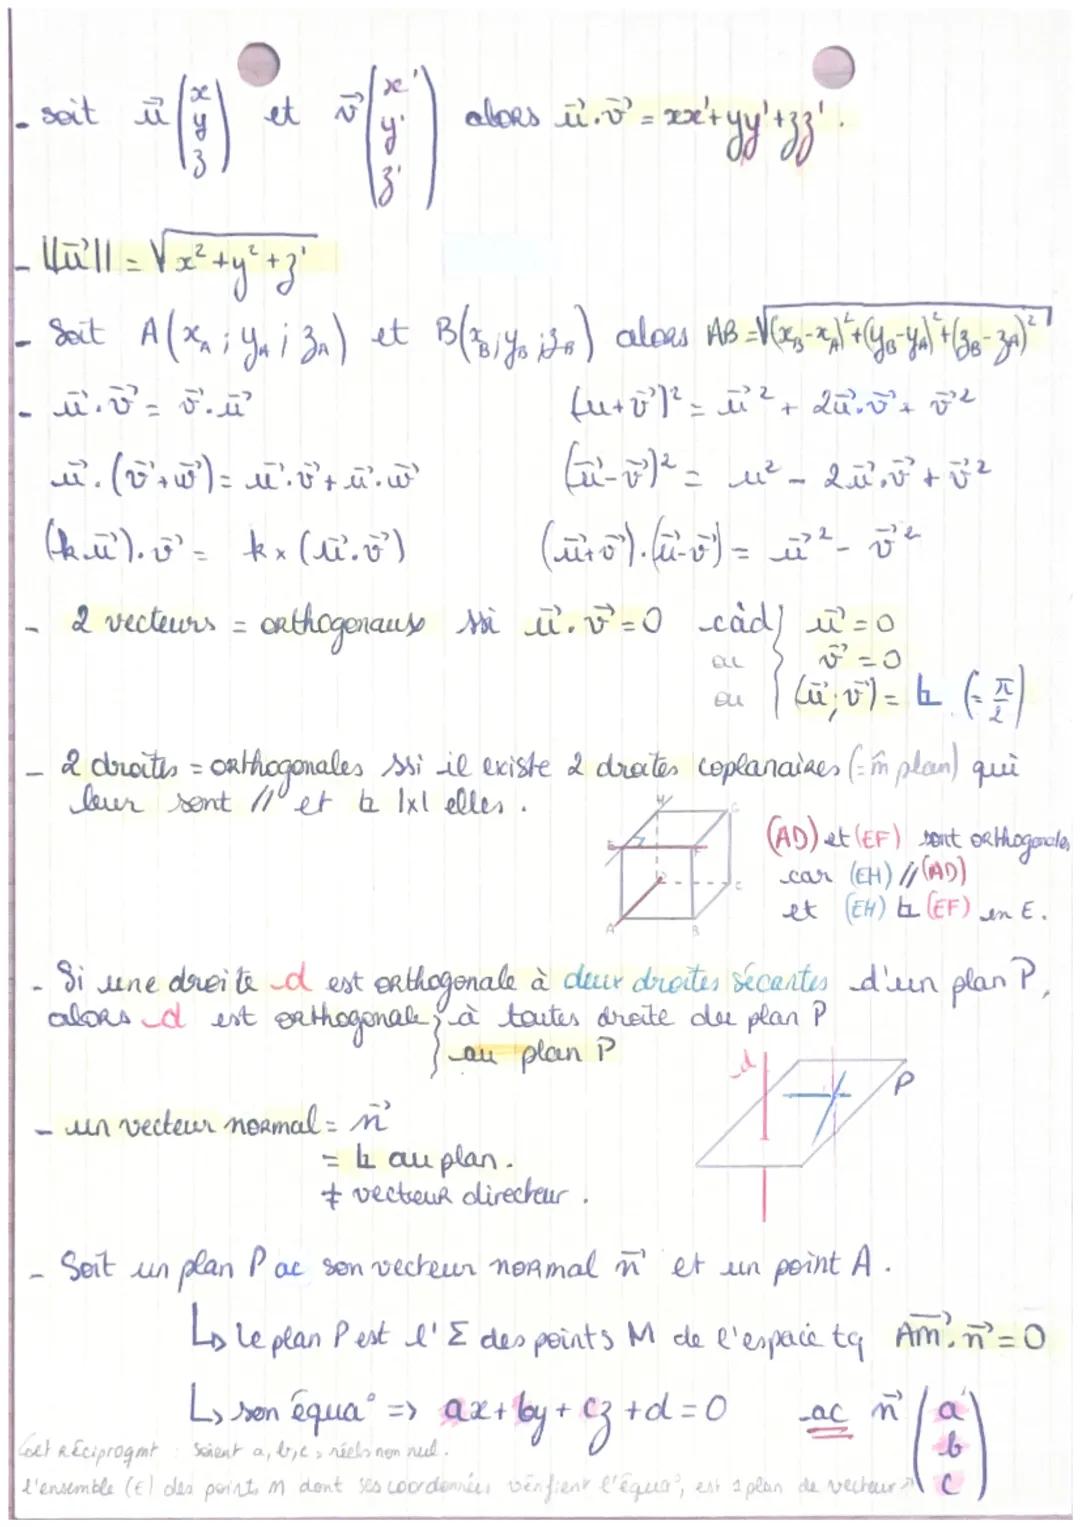 - soit u⃗ (x y z) et v⃗ (x' y' z') alors u⃗.v⃗ = xx'+yy'+zz'.
- ||u⃗|| = √x²+y²+z'
- Soit A(x_A ; y_A ; z_A) et B(x_B ; y_B ; z_B) alors AB = √(x_B-x_A)²+(y_B-y_A)²+(z_B-z_A)²
- u⃗.v⃗ = v⃗.u⃗ (u+v⃗)² = u⃗² + 2u⃗.v⃗ + v⃗²
u⃗.(v⃗+w⃗) = u⃗.v⃗ + u⃗.w⃗ (u⃗-v⃗)² = u² - 2u⃗.v⃗ + v⃗²
(k.u⃗).v⃗ = k×(u⃗.v⃗) (u⃗+v⃗).(u⃗-v⃗) = u⃗² - v⃗²
- 2 vecteurs = orthogonaux ssi u⃗.v⃗ = 0 càd } u⃗ = 0
ou v⃗ = 0
ou (u⃗;v⃗) = ⊾ (= π/2)
- 2 droites = orthogonales ssi il existe 2 droites coplanaires (= m̂ plan) qui
leur sont // et ⊾ 1x1 elles.
H
G
E
F
D
C
A
B
(AD) et (EF) sont orthogonales
car (EH) // (AD)
et (EH) ⊾ (EF) en E.
- Si une droite d est orthogonale à deux droites sécantes d'un plan P,
alors d est orthogonale } à toutes droite du plan P
au plan P
d
P
- un vecteur normal = n⃗
= ⊾ au plan.
≠ vecteur directeur.
- Soit un plan P ac son vecteur normal n⃗ et un point A.
↳ le plan P est l'Σ des points M de l'espace tq AM⃗.n⃗ = 0
↳ son équa° => ax + by + cz + d = 0 ac n⃗ (a b c)
(et réciproqmt : Soient a, b, c, réels non nul.
l'ensemble (E) des points M dont ses coordonnées vérifient l'équa°, est 1 plan de vecteur n⃗